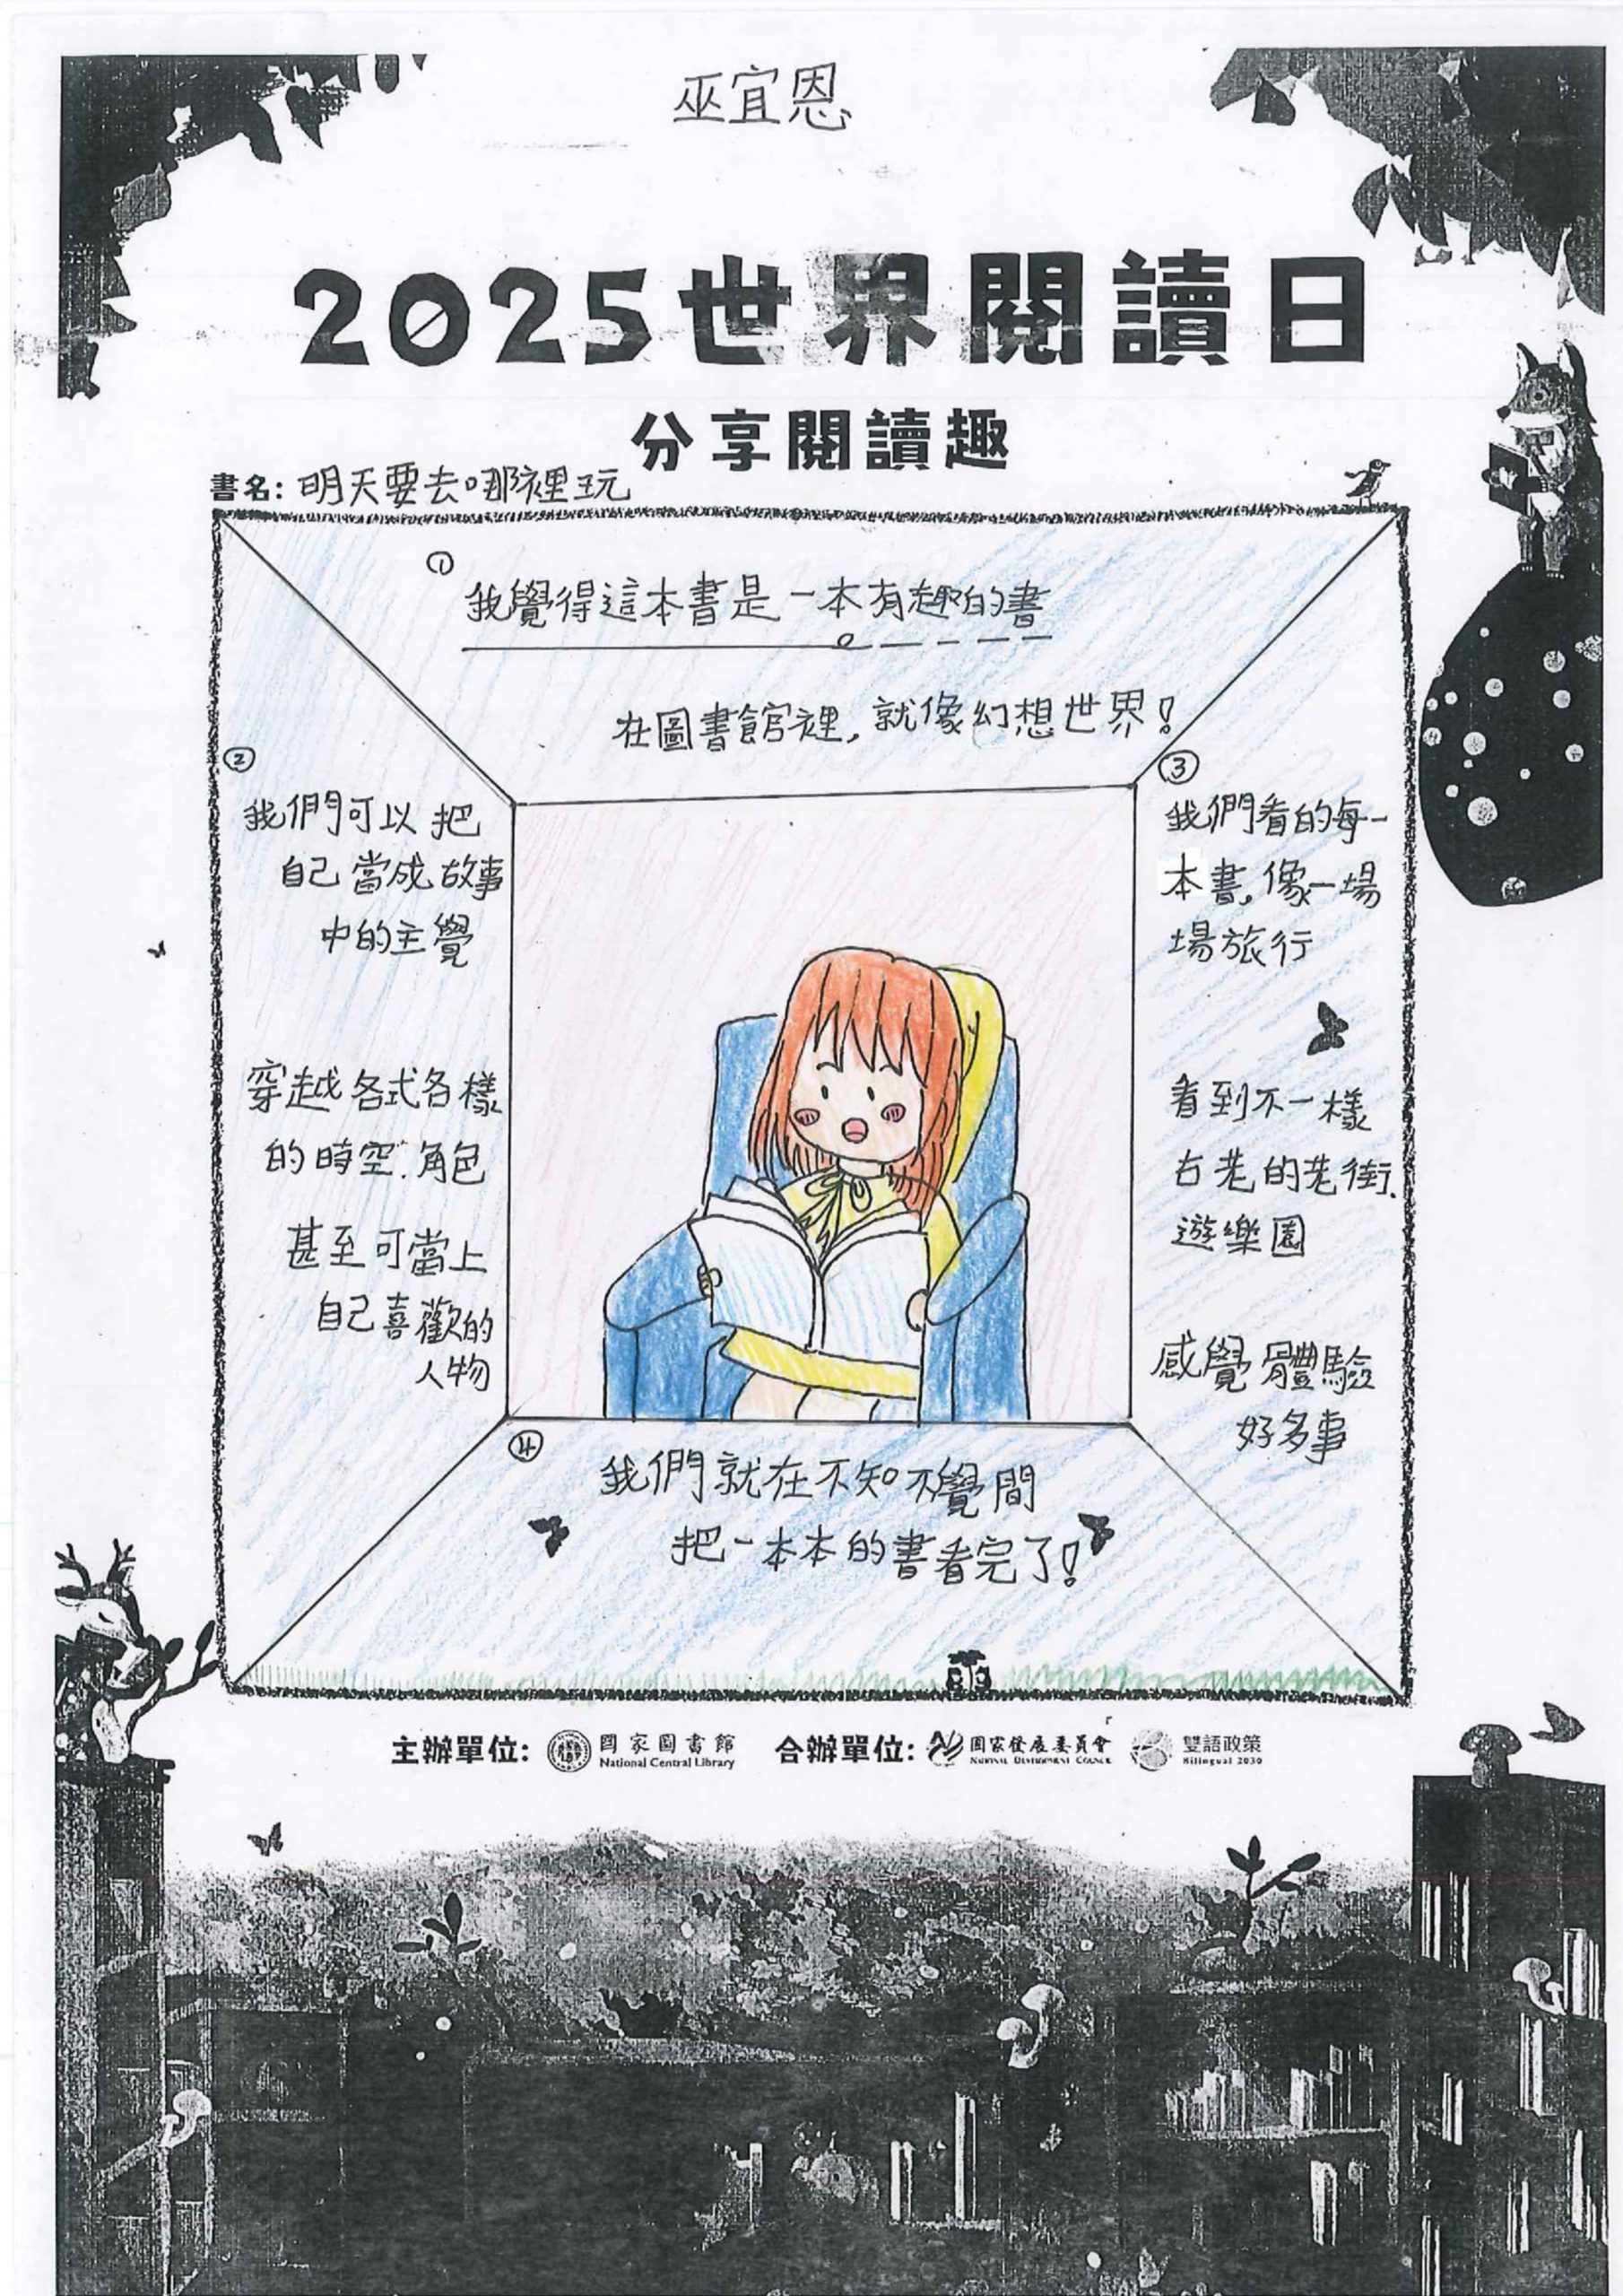 巫宜恩
2025世界閱讀日
分享閱讀趣
書名: 明天要去哪裡玩
①
我覺得這本書是一本有趣的書
在圖書館裡,就像幻想世界!
②
我們可以把
自己當成故事
中的主覺
穿越各式各樣
的時空.角色
甚至可當上
自己喜歡的
人物
③
我們看的每一
本書,像一場
場旅行
看到不一樣
古老的老街.
遊樂園
感覺體驗
好多事
④
我們就在不知不覺間
把一本本的書看完了!
主辦單位: 國家圖書館 National Central Library 合辦單位: 國家發展委員會 NATIONAL DEVELOPMENT COUNCIL 雙語政策 Bilingual 2030